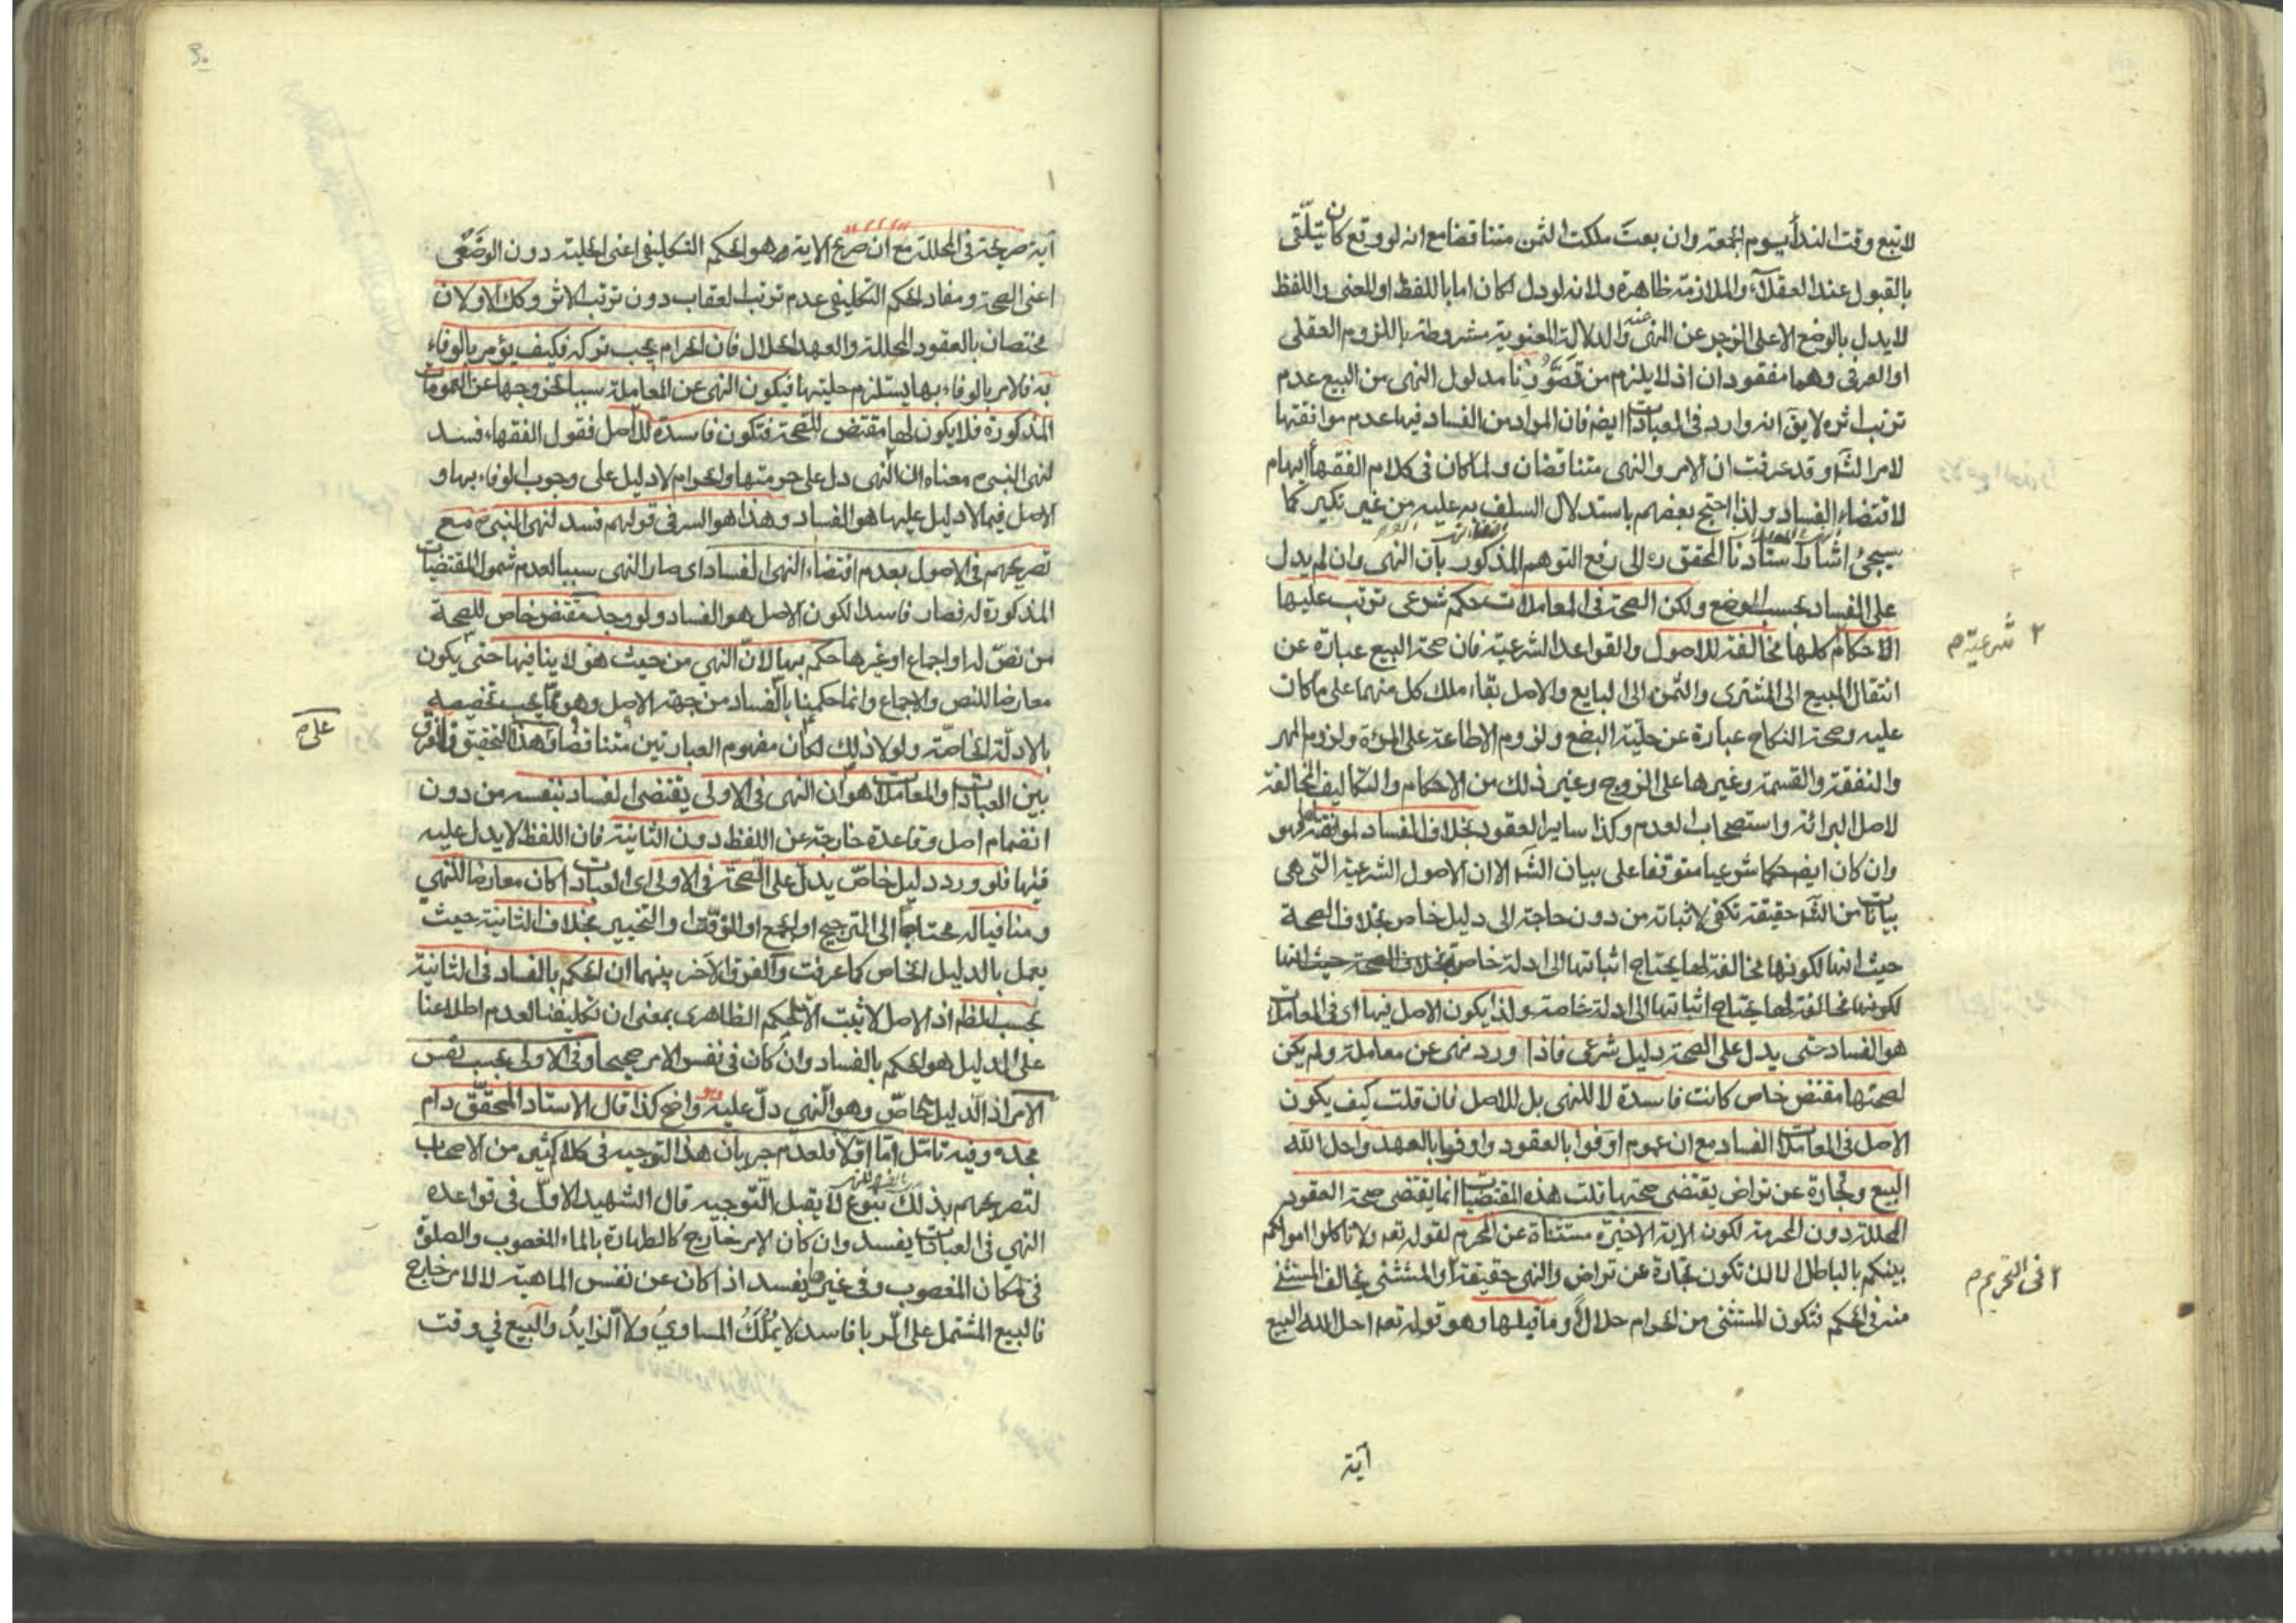 لا تبع وقت الندأ يوم الجمعة وان بعت ملكت الثمن متناقضا مع انه لو وقع كان يتلقى
بالقبول عند العقلآء والملازمة ظاهرة ولانه لو دل لكان اما باللفظ او المعنى واللفظ
لا يدل بالوضع الا على الزجر عن المنهى عنه والدلالة المعنوية مشروطة باللزوم العقلى
او العرفى وهما مفقودان اذ لا يلزم من تصورنا مدلول النهى من البيع عدم
ترتب اثره لا يق انه وارد فى العبادات ايضا فان المراد من الفساد فيها عدم موافقتها
لامر الشآ وقد عرفت ان الامر والنهى متناقضان ولما كان فى كلام الفقهآ ايهام
لاقتضاء الفساد ولذا احتج بعضهم باستدلال السلف به عليه من غير نكير كما
سيجئ اشار استادنا المحقق ره الى رفع التوهم المذكور بان النهى وان لم يدل
على الفساد بحسب الوضع ولكن الصحة فى المعاملات حكم شرعى ترتب عليها
الاحكام كلها مخالفة للاصول والقواعد الشرعية فان صحة البيع عبارة عن
انتقال المبيع الى المشترى والثمن الى البايع والاصل بقاء ملك كل منهما على ما كان
عليه وصحة النكاح عبارة عن حلية البضع ولزوم الاطاعة على المرءة ولزوم المهر
والنفقة والقسمة وغيرها على الزوج وغير ذلك من الاحكام والتكاليف المخالفة
لاصل البرائة واستصحاب العدم وكذا ساير العقود بخلاف الفساد لموافقته لها فهو
وان كان ايضا حكما شرعيا متوقفا على بيان الشآ الا ان الاصول الشرعية التى هى
بيانات من الشآ حقيقة تكفى لاثباته من دون حاجة الى دليل خاص بخلاف الصحة
حيث انها لكونها مخالفة لها يحتاج اثباتها الى ادلة خاصة بخلاف الصحة حيث انها
لكونها مخالفة لها يحتاج اثباتها الى ادلة خاصة ولذا يكون الاصل فيها اى فى المعاملات
هو الفساد حتى يدل على الصحة دليل شرعى فاذا ورد نهى عن معاملة ولم يكن
لصحتها مقتض خاص كانت فاسدة لا للنهى بل للاصل فان قلت كيف يكون
الاصل فى المعاملات الفساد مع ان عموم اوفوا بالعقود واوفوا بالعهد واحل الله
البيع وتجارة عن تراض يقتضى صحتها قلت هذه المقتضيات انما يقتضى صحة العقود
المحللة دون المحرمة لكون الاية الاخيرة مستثناة عن المحرم لقوله تعم ولا تاكلوا اموالكم
بينكم بالباطل الا ان تكون تجارة عن تراض والنهى حقيقة والمستثنى يخالف المستثنى
منه فى الحكم فتكون المستثنى من الحرام حلالا وما قبلها وهو قوله تعم احل الله البيع
٢ شرعية م
٢ فى التحريم م
آية
آية صريحة فى المحللة مع ان صريح الاية هو الحكم التكليفى اعنى الحلية دون الوضعى
اعنى الصحة ومفاد الحكم التكليفى عدم ترتب العقاب دون ترتب الاثر وكك الاولان
مختصان بالعقود المحللة والعهد الحلال فان الحرام يجب تركه فكيف يؤمر بالوفاء
به فالامر بالوفاء بها يستلزم حليتها فيكون النهى عن المعاملة سببا لخروجها عن العمومات
المذكورة فلا يكون لها مقتض للصحة فتكون فاسدة للاصل فقول الفقهاء فسد
لنهى النبى ص معناه ان النهى دل على حرمتها والحرام لا دليل على وجوب الوفاء بها و
الاصل فيما لا دليل عليها هو الفساد وهذا هو السر فى قولهم فسد لنهى النبى ص مع
تصريحهم فى الاصول بعدم اقتضاء النهى الفساد اى صار النهى سببا لعدم شمول المقتضيات
المذكورة له فصار فاسدا لكون الاصل هو الفساد ولو وجد مقتض خاص للصحة
من نص له او اجماع او غيرها حكم بها لان النهي من حيث هو لا ينافيها حتى يكون
معارضا للنص والاجماع وانما حكمنا بالفساد من جهة الاصل وهو مما يجب تخصيصه
بالادلة الخاصة ولولا ذلك لكان مفهوم العبارتين متناقضا وهذا التحقيق والفرق
بين العبادات والمعاملات هو ان النهى فى الاولى يقتضى الفساد بنفسه من دون
انضمام اصل وقاعدة خارجة عن اللفظ دون الثانية فان اللفظ لا يدل عليه
فيها فلو ورد دليل خاص يدل على الصحة فى الاولى اى العبادات كان معارضا للنهي
ومنافيا له محتاجا الى الترجيح او الجمع او التوقف والتخيير بخلاف الثانية حيث
يعمل بالدليل الخاص كما عرفت والفرق الآخر بينهما ان الحكم بالفساد فى الثانية
بحسب الظم اذ الاصل لا يثبت الا الحكم الظاهرى بمعنى ان تكليفنا لعدم اطلاعنا
على الدليل هو الحكم بالفساد وان كان فى نفس الامر صحيحا وفى الاولى بحسب نفس
الامر اذ الدليل خاص وهو النهي دل عليه وهو واضح كذا قال الاستاد المحقق دام
مجده وفيه تامل اما اولا فلعدم جريان هذا التوجيه فى كلام كثير من الاصحاب
لتصريحهم بذلك بنوع لا يقبل التوجيه قال الشهيد الاول فى قواعده
النهي فى العبادات يفسد وان كان لامر خارج كالطهارة بالماء المغصوب والصلوة
فى مكان المغصوب وفى غيرها يفسد اذا كان عن نفس الماهية لا لامر خارج
فالبيع المشتمل على الربا فاسد لا يملك المساوي ولا الزايد والبيع في وقت
على م